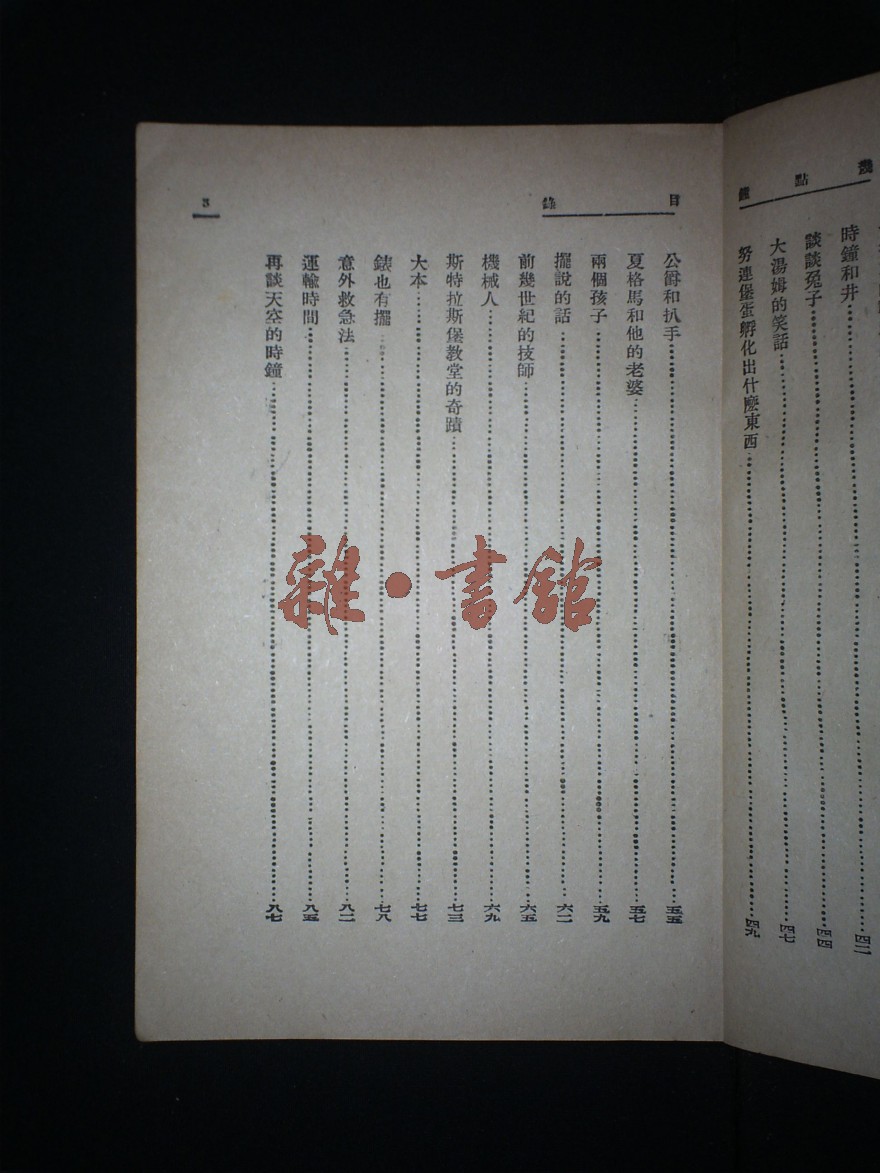 幾點鐘
時鐘和井……四二
談談兔子……四四
大湯姆的笑話……四七
努連堡蛋孵化出什麼東西……四九
目錄
公爵和扒手……五五
夏格馬和他的老婆……五七
兩個孩子……五九
擺說的話……六二
前幾世紀的技師……六五
機械人……六九
斯特拉斯堡教堂的奇蹟……七三
大本……七七
錶也有擺……七八
意外救急法……八二
運輸時間……八五
再談天空的時鐘……八七
3
雜·書館